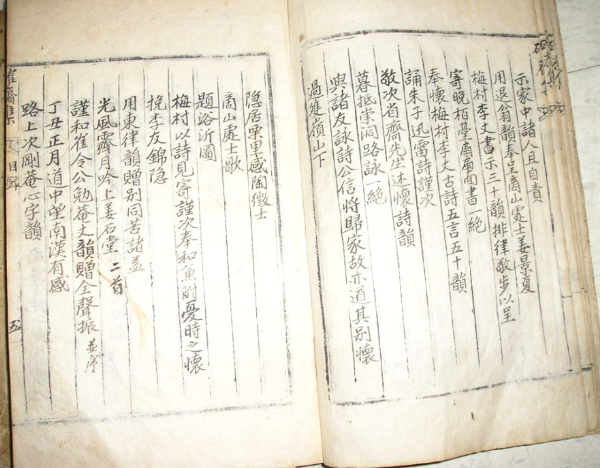 示家中諸人且自責
用退翁韻奉呈商山處士姜景夏
梅村李丈書示三十韻排律敬步以呈
寄晚栢臺扇扇面書一絶
奉懷梅村李丈古詩五言五十韻
誦朱子迅雷詩謹次
敬次省齋先生述懷詩韻
暮抵崇洞路詠一絶
與諸友詠詩公信將歸家故亦道其別懷
過雙嶺山下
隱居栗里感陶徵士
商山處士歌
題浴沂圖
梅村以詩見寄謹次奉和兼附憂時之懷
挽李友錦隱
用東律韻贈別同苦諸益
光風霽月吟上姜石堂 二首
謹和崔令公勉菴丈韻贈全聲振 並序
丁丑正月道中望南漢有感
路上次剛菴心字韻
齋集 目錄 五